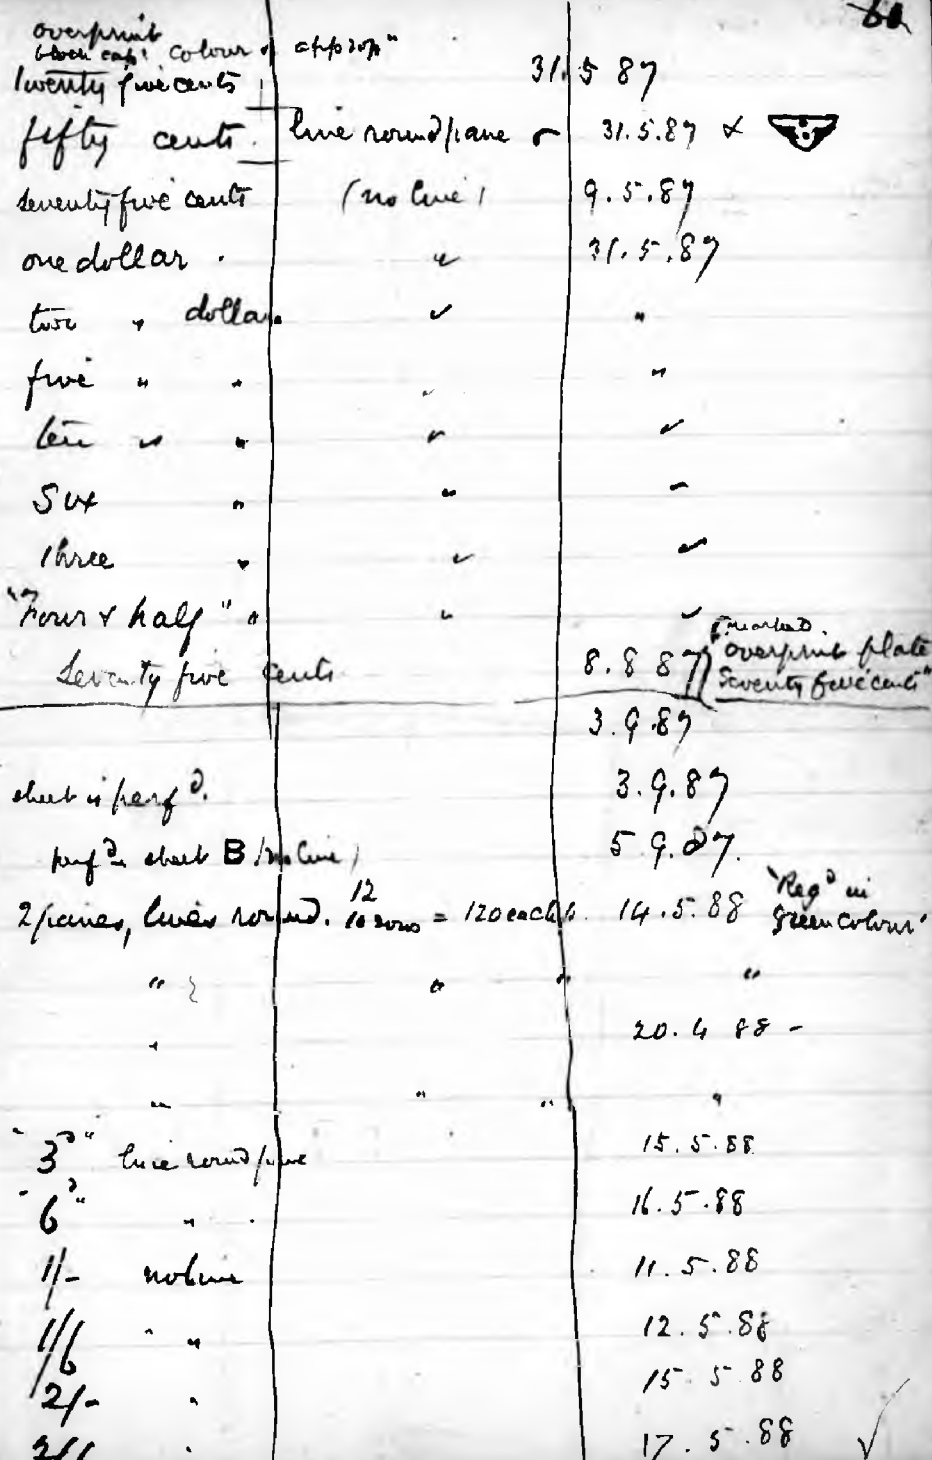 overprint
block caps colour of approp"
twenty five cents 31.5 87
fifty cents. line round pane 31.5.87 &
seventy five cents (no line) 9.5.87
one dollar . " 31.5.87
two " dollar. " "
five " " " "
ten " " " "
Six " " "
three " " "
"Four & half" " " "
marked.
Seventy five cents 8.8 87 overprint plate
Seventy five cents"
3.9.87
sheet is perfd. 3.9.87
perfd sheet B (no line) 5 9.87.
12
2 panes, lines round. 10 rows = 120 each 14.5.88 "Regd in
green colour"
" " " "
" 20.4 88 -
" " " "
"3d" line round pane 15.5.88
"6d" " . 16.5.88
1/- no line 11.5.88
1/6 " " 12.5.88
2/- " 15 5 88
2/6 " 17.5.88